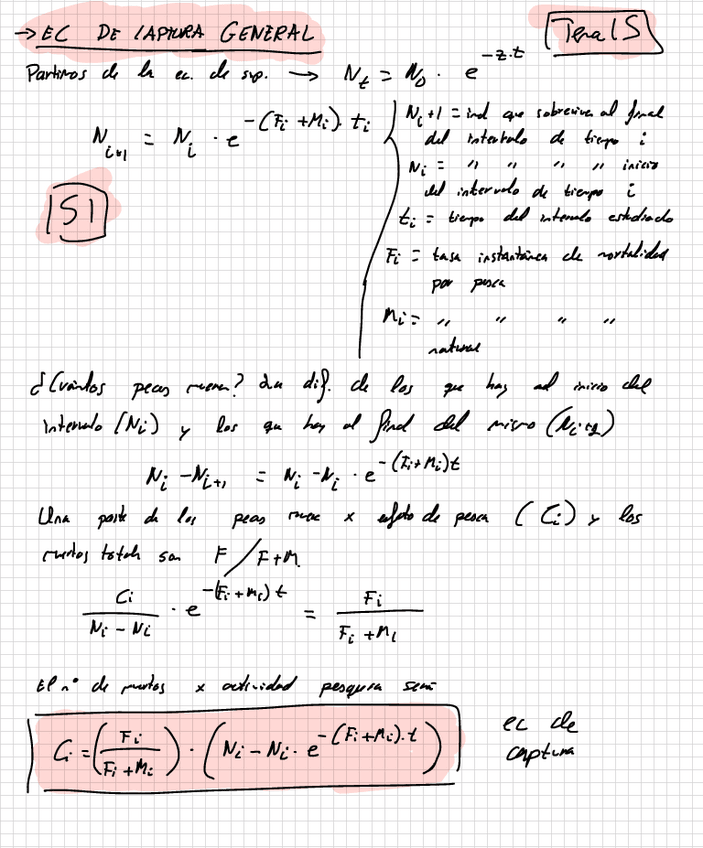 → EC DE CAPTURA GENERAL
Tema 15
Partimos de la ec. de sup. → N_t = N_0 · e^{-z·t}
N_{i+1} = N_i · e^{-(F_i + M_i)· t_i}
N_i+1 = ind que sobreviven al final
del intervalo de tiempo i
N_i = " " " " inicio
del intervalo de tiempo i
t_i = tiempo del intervalo estudiado
F_i = tasa instantánea de mortalidad
por pesca
M_i = " " " "
natural
51
¿Cuántos peces mueren? La dif. de los que hay al inicio del
intervalo (N_i) y los que hay al final del mismo (N_{i+1})
N_i - N_{i+1} = N_i - N_i · e^{-(F_i + M_i)t}
Una parte de los peces muere x efecto de pesca (C_i) y los
muertos totales son F/F+M.
C_i / (N_i - N_i) · e^{-(F_i + M_i) t} = F_i / (F_i + M_i)
El nº de muertos x actividad pesquera será
C_i = (F_i / (F_i + M_i)) · (N_i - N_i · e^{-(F_i + M_i)·t})
ec de
captura